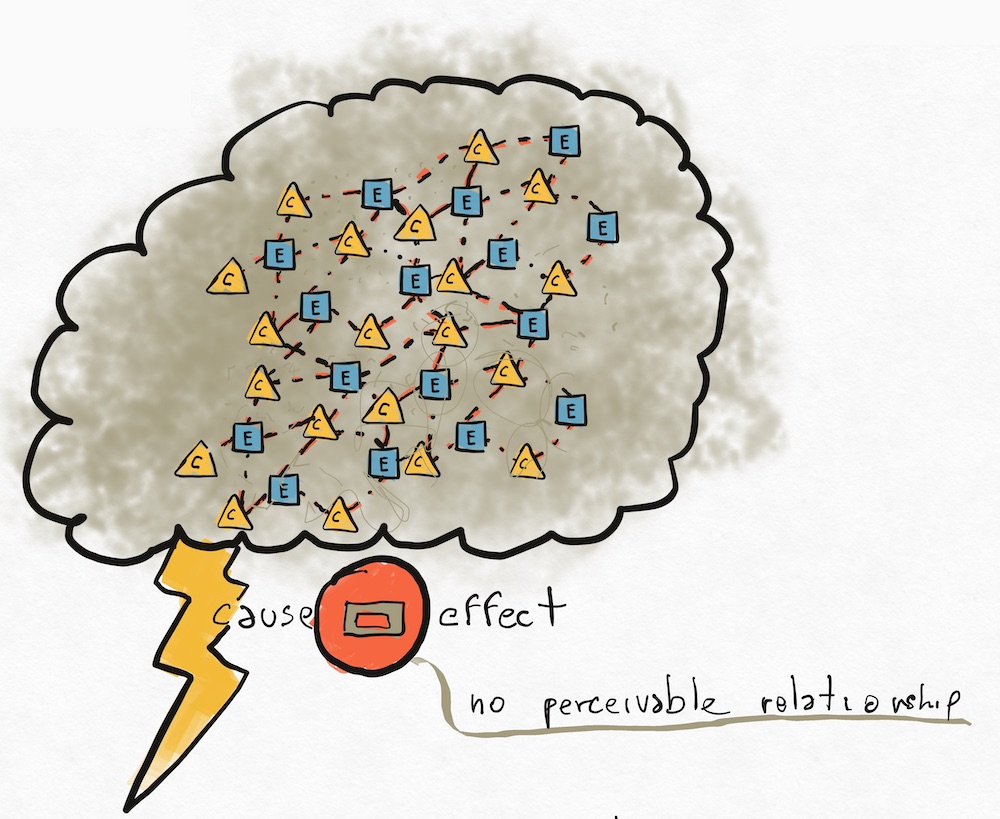 C E
C E E C
C C E
E E
C E C C
E
C C C E
C E E C
C E
E C E
C E C C
E
C C
cause effect
no perceivable relationship